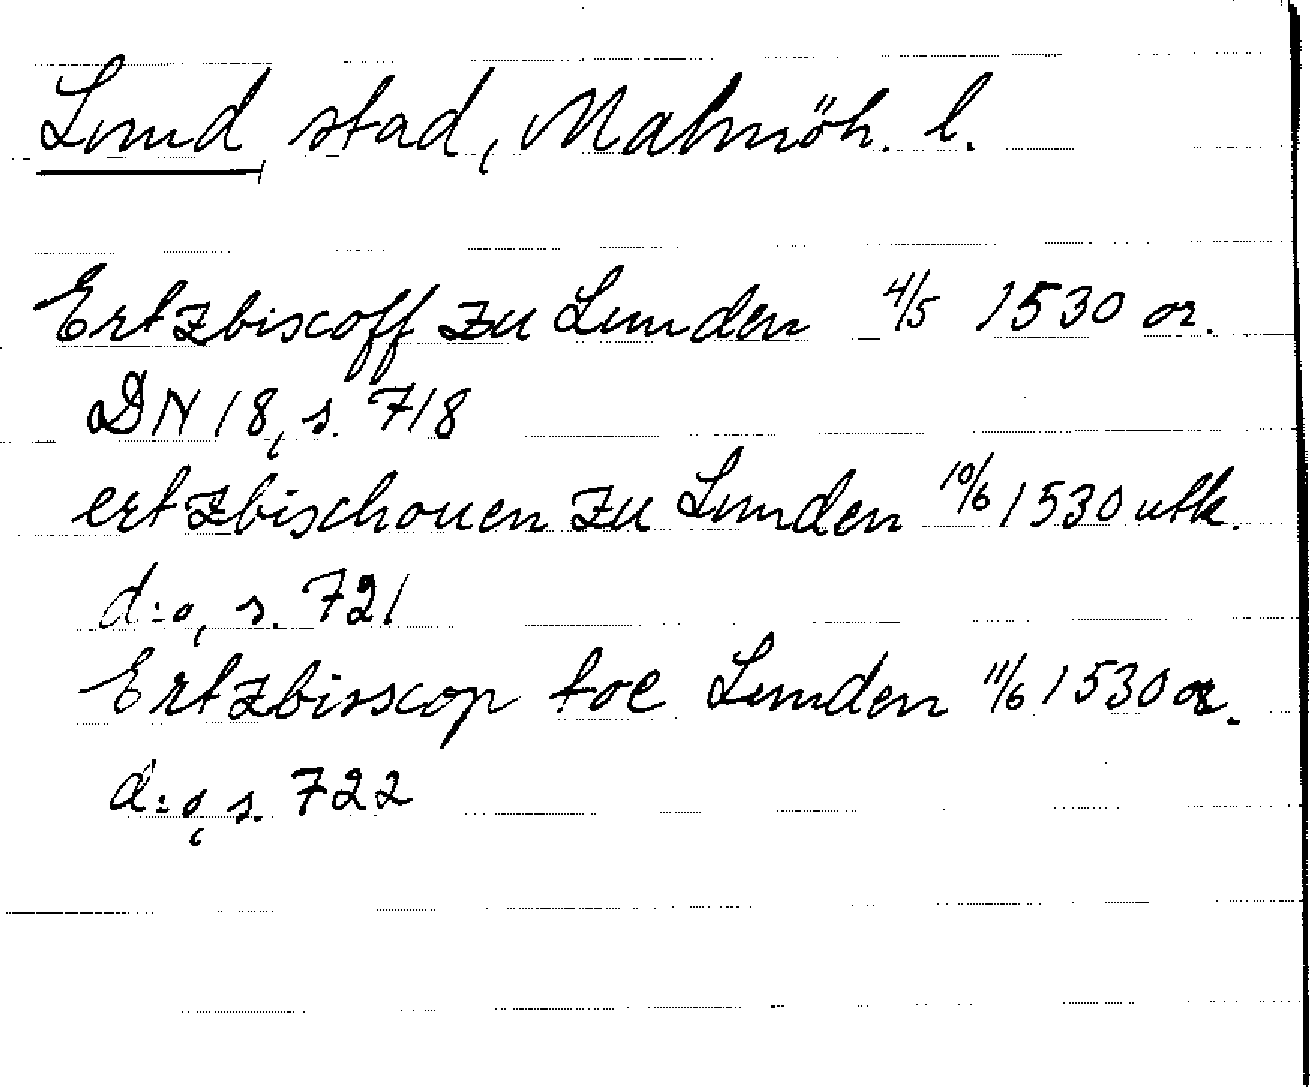 Lund stad, Malmöh. l.
Ertzbiscoff zu Lunden 4/5 1530 or.
DN 18, s. 718
ertzbischouen zu Lunden 10/6 1530 utk.
d:o, s. 721
Ertzbisscop toe Lunden 11/6 1530 or.
d:o, s. 722